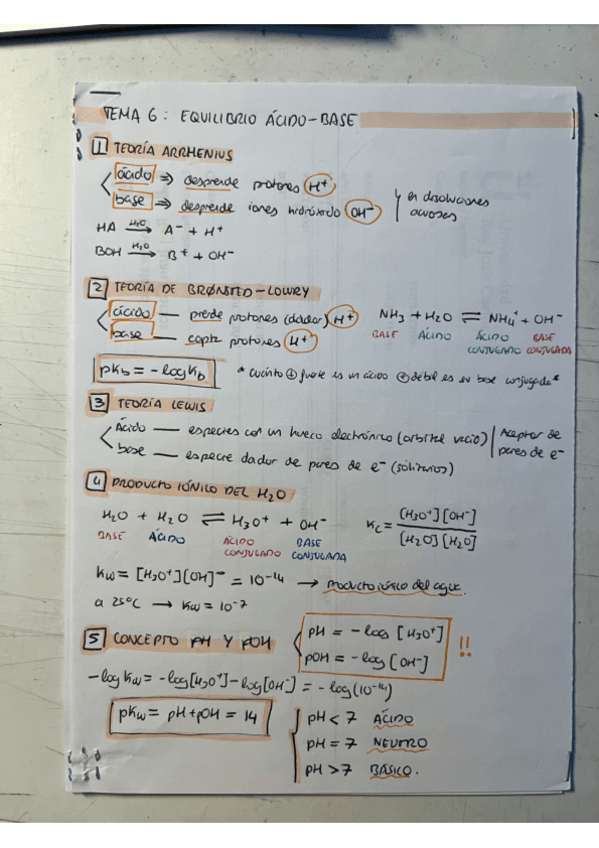 TEMA 6: EQUILIBRIO ÁCIDO-BASE
1 TEORÍA ARRHENIUS
ácido ⇒ desprende protones H⁺
base ⇒ desprende iones hidróxido OH⁻
en disoluciones acuosas
HA —H₂O→ A⁻ + H⁺
BOH —H₂O→ B⁺ + OH⁻
2 TEORÍA DE BRØNSTED-LOWRY
ácido — pierde protones (dador) H⁺
base — capta protones H⁺
NH₃ + H₂O ⇌ NH₄⁺ + OH⁻
BASE ÁCIDO ÁCIDO CONJUGADO BASE CONJUGADA
pKb = -logKb
* cuánto ⊕ fuerte es un ácido ⊕ débil es su base conjugada *
3 TEORÍA LEWIS
Ácido — especies con un hueco electrónico (orbital vacío) | Aceptor de pares de e⁻
base — especie dador de pares de e⁻ (solitarios)
4 PRODUCTO IÓNICO DEL H₂O
H₂O + H₂O ⇌ H₃O⁺ + OH⁻
BASE ÁCIDO ÁCIDO CONJUGADO BASE CONJUGADA
Kc = [H₃O⁺][OH⁻] / [H₂O][H₂O]
Kw = [H₃O⁺][OH]⁻ = 10⁻¹⁴ → producto iónico del agua.
a 25ºC → Kw = 10⁻⁷
5 CONCEPTO PH Y POH
pH = -log [H₃O⁺]
pOH = -log [OH⁻]
!!
-log Kw = -log[H₃O⁺]-log[OH⁻] = -log(10⁻¹⁴)
pKw = pH+pOH = 14
pH < 7 ÁCIDO
pH = 7 NEUTRO
pH > 7 BÁSICO.